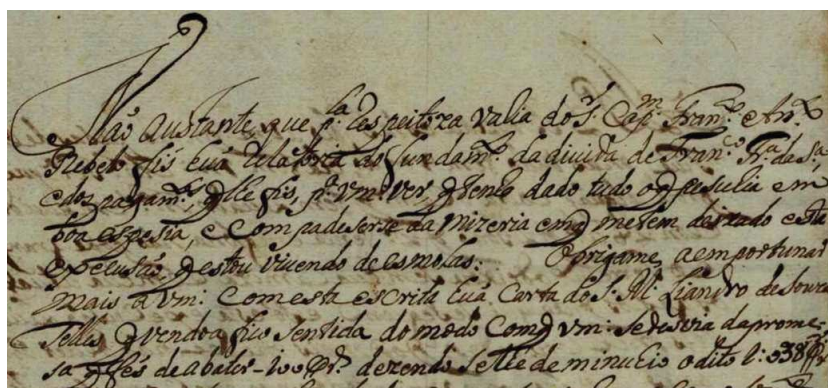 Não Qustante, que pla Respeitoza valia do Sr. Capm. Franco. Anto.
Rebelo fis huã Relatoria do fundamto. da divida de Franco. Fra. da Sa.
e dos pagamtos., q lhe fis, pa. vm: ver, q tenho dado tudo o q pesuhia em
boa espesia, e Compadeserse da Mizeria em q me tem deixado esta
execusão, q estou vivendo de esmolas: Obrigame, a emportunar
mais a vm: Com esta escrita huã Carta do S. M. Liandro de Souza
Telles, q vendo a fico sentida do modo Com q vm: se desvia da prome-
sa, q fés de abater - 100 dezendo se lhe deminuhio o dito